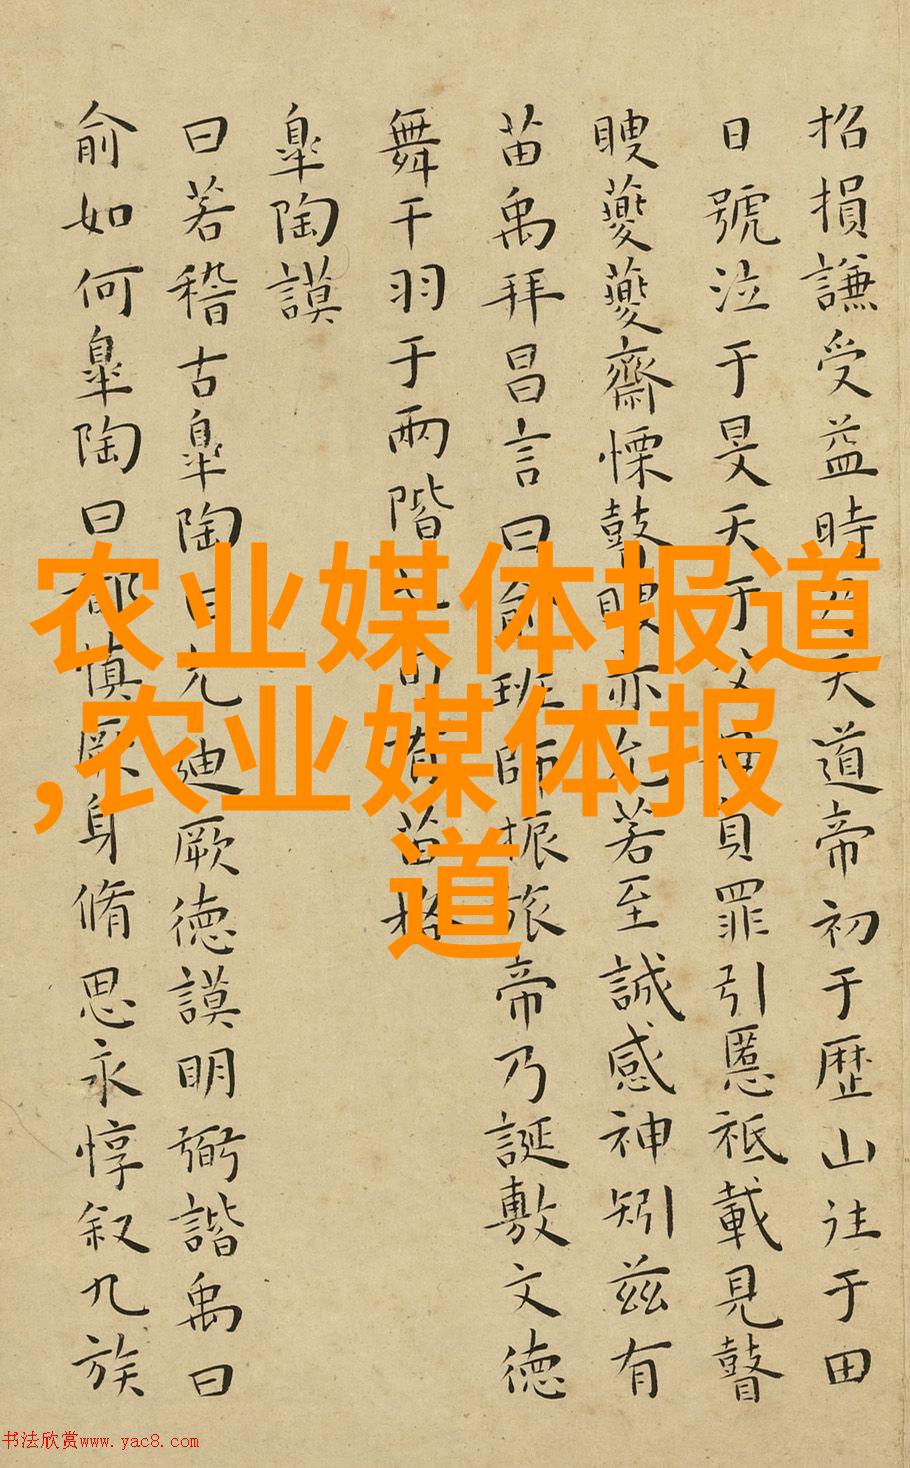 招損謙受益時乃天道帝初于歴山往于田
日號泣于旻天于父母負罪引慝祗載見瞽
瞍夔夔齋慄瞽瞍亦允若至誠感神矧茲有
苗禹拜昌言曰俞班師振旅帝乃誕敷文徳
舞干羽于兩階七旬有苗格
皐陶謨
曰若稽古皐陶曰允迪厥徳謨明弼諧禹曰
俞如何皐陶曰都慎厥身脩思永惇叙九族
农业媒体报道
,农业媒体报
道
书法欣赏www.yac8.com